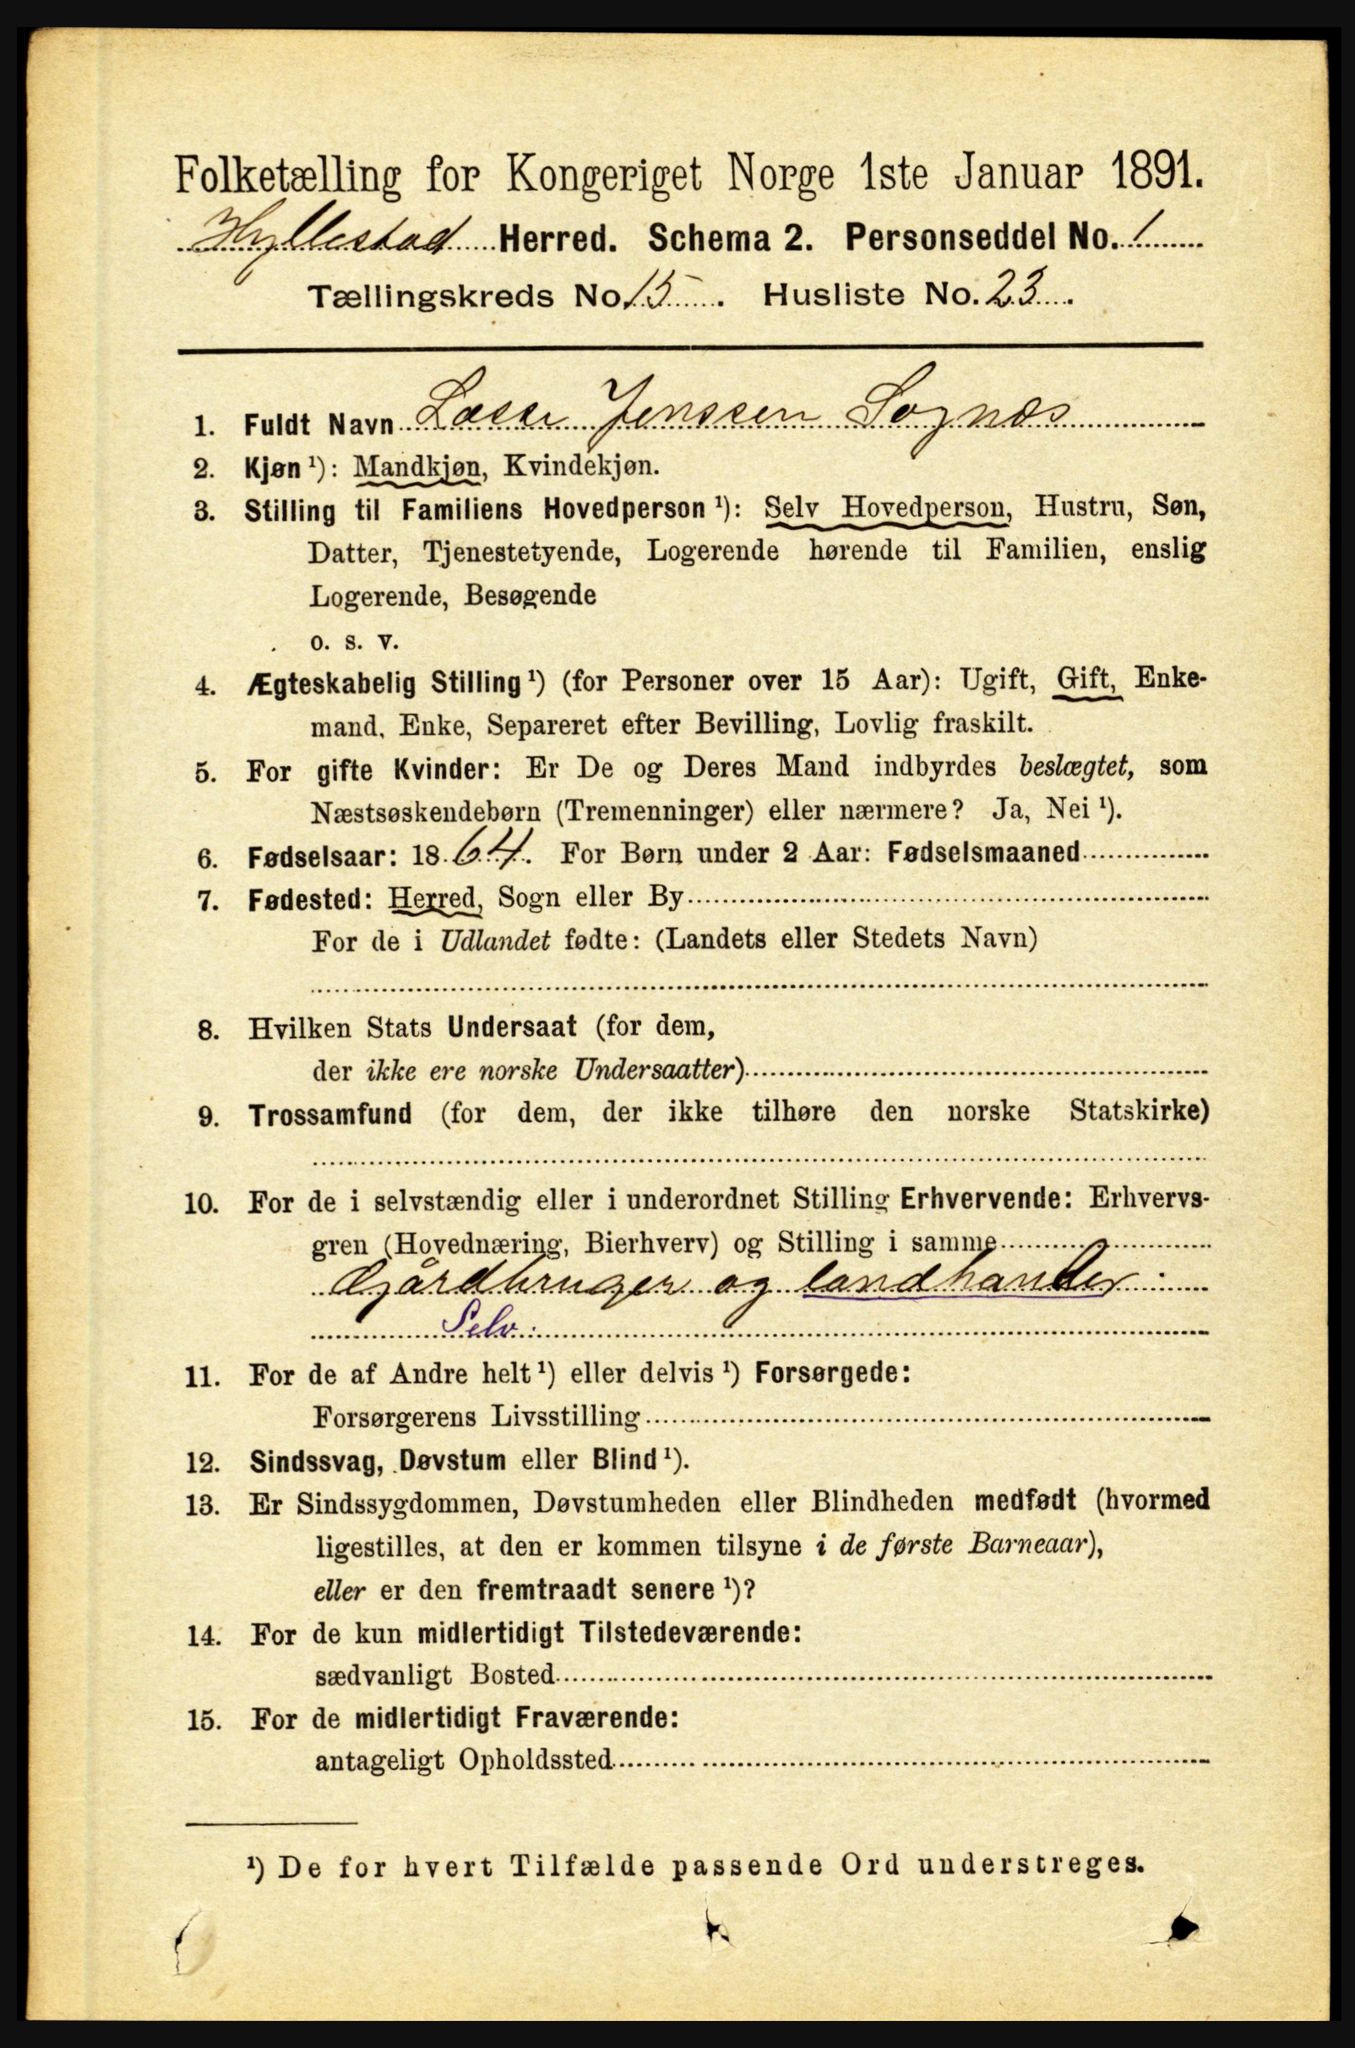 Folketælling for Kongeriget Norge 1ste Januar 1891.
Hyllestad Herred. Schema 2. Personseddel No. 1
Tællingskreds No. 15. Husliste No. 23.
1. Fuldt Navn Lasse Jenssen Sognæs
2. Kjøn ¹): Mandkjøn, Kvindekjøn.
3. Stilling til Familiens Hovedperson ¹): Selv Hovedperson, Hustru, Søn,
Datter, Tjenestetyende, Logerende hørende til Familien, enslig
Logerende, Besøgende
o. s. v.
4. Ægteskabelig Stilling ¹) (for Personer over 15 Aar): Ugift, Gift, Enke-
mand, Enke, Separeret efter Bevilling, Lovlig fraskilt.
5. For gifte Kvinder: Er De og Deres Mand indbyrdes beslægtet, som
Næstsøskendebørn (Tremenninger) eller nærmere? Ja, Nei ¹).
6. Fødselsaar: 1864. For Børn under 2 Aar: Fødselsmaaned
7. Fødested: Herred, Sogn eller By
For de i Udlandet fødte: (Landets eller Stedets Navn)
8. Hvilken Stats Undersaat (for dem,
der ikke ere norske Undersaatter)
9. Trossamfund (for dem, der ikke tilhøre den norske Statskirke)
10. For de i selvstændig eller i underordnet Stilling Erhvervende: Erhvervs-
gren (Hovednæring, Bierhverv) og Stilling i samme
Gjårdbruger og landhandler
Selv.
11. For de af Andre helt ¹) eller delvis ¹) Forsørgede:
Forsørgerens Livsstilling
12. Sindssvag, Døvstum eller Blind ¹).
13. Er Sindssygdommen, Døvstumheden eller Blindheden medfødt (hvormed
ligestilles, at den er kommen tilsyne i de første Barneaar),
eller er den fremtraadt senere ¹)?
14. For de kun midlertidigt Tilstedeværende:
sædvanligt Bosted
15. For de midlertidigt Fraværende:
antageligt Opholdssted
¹) De for hvert Tilfælde passende Ord understreges.